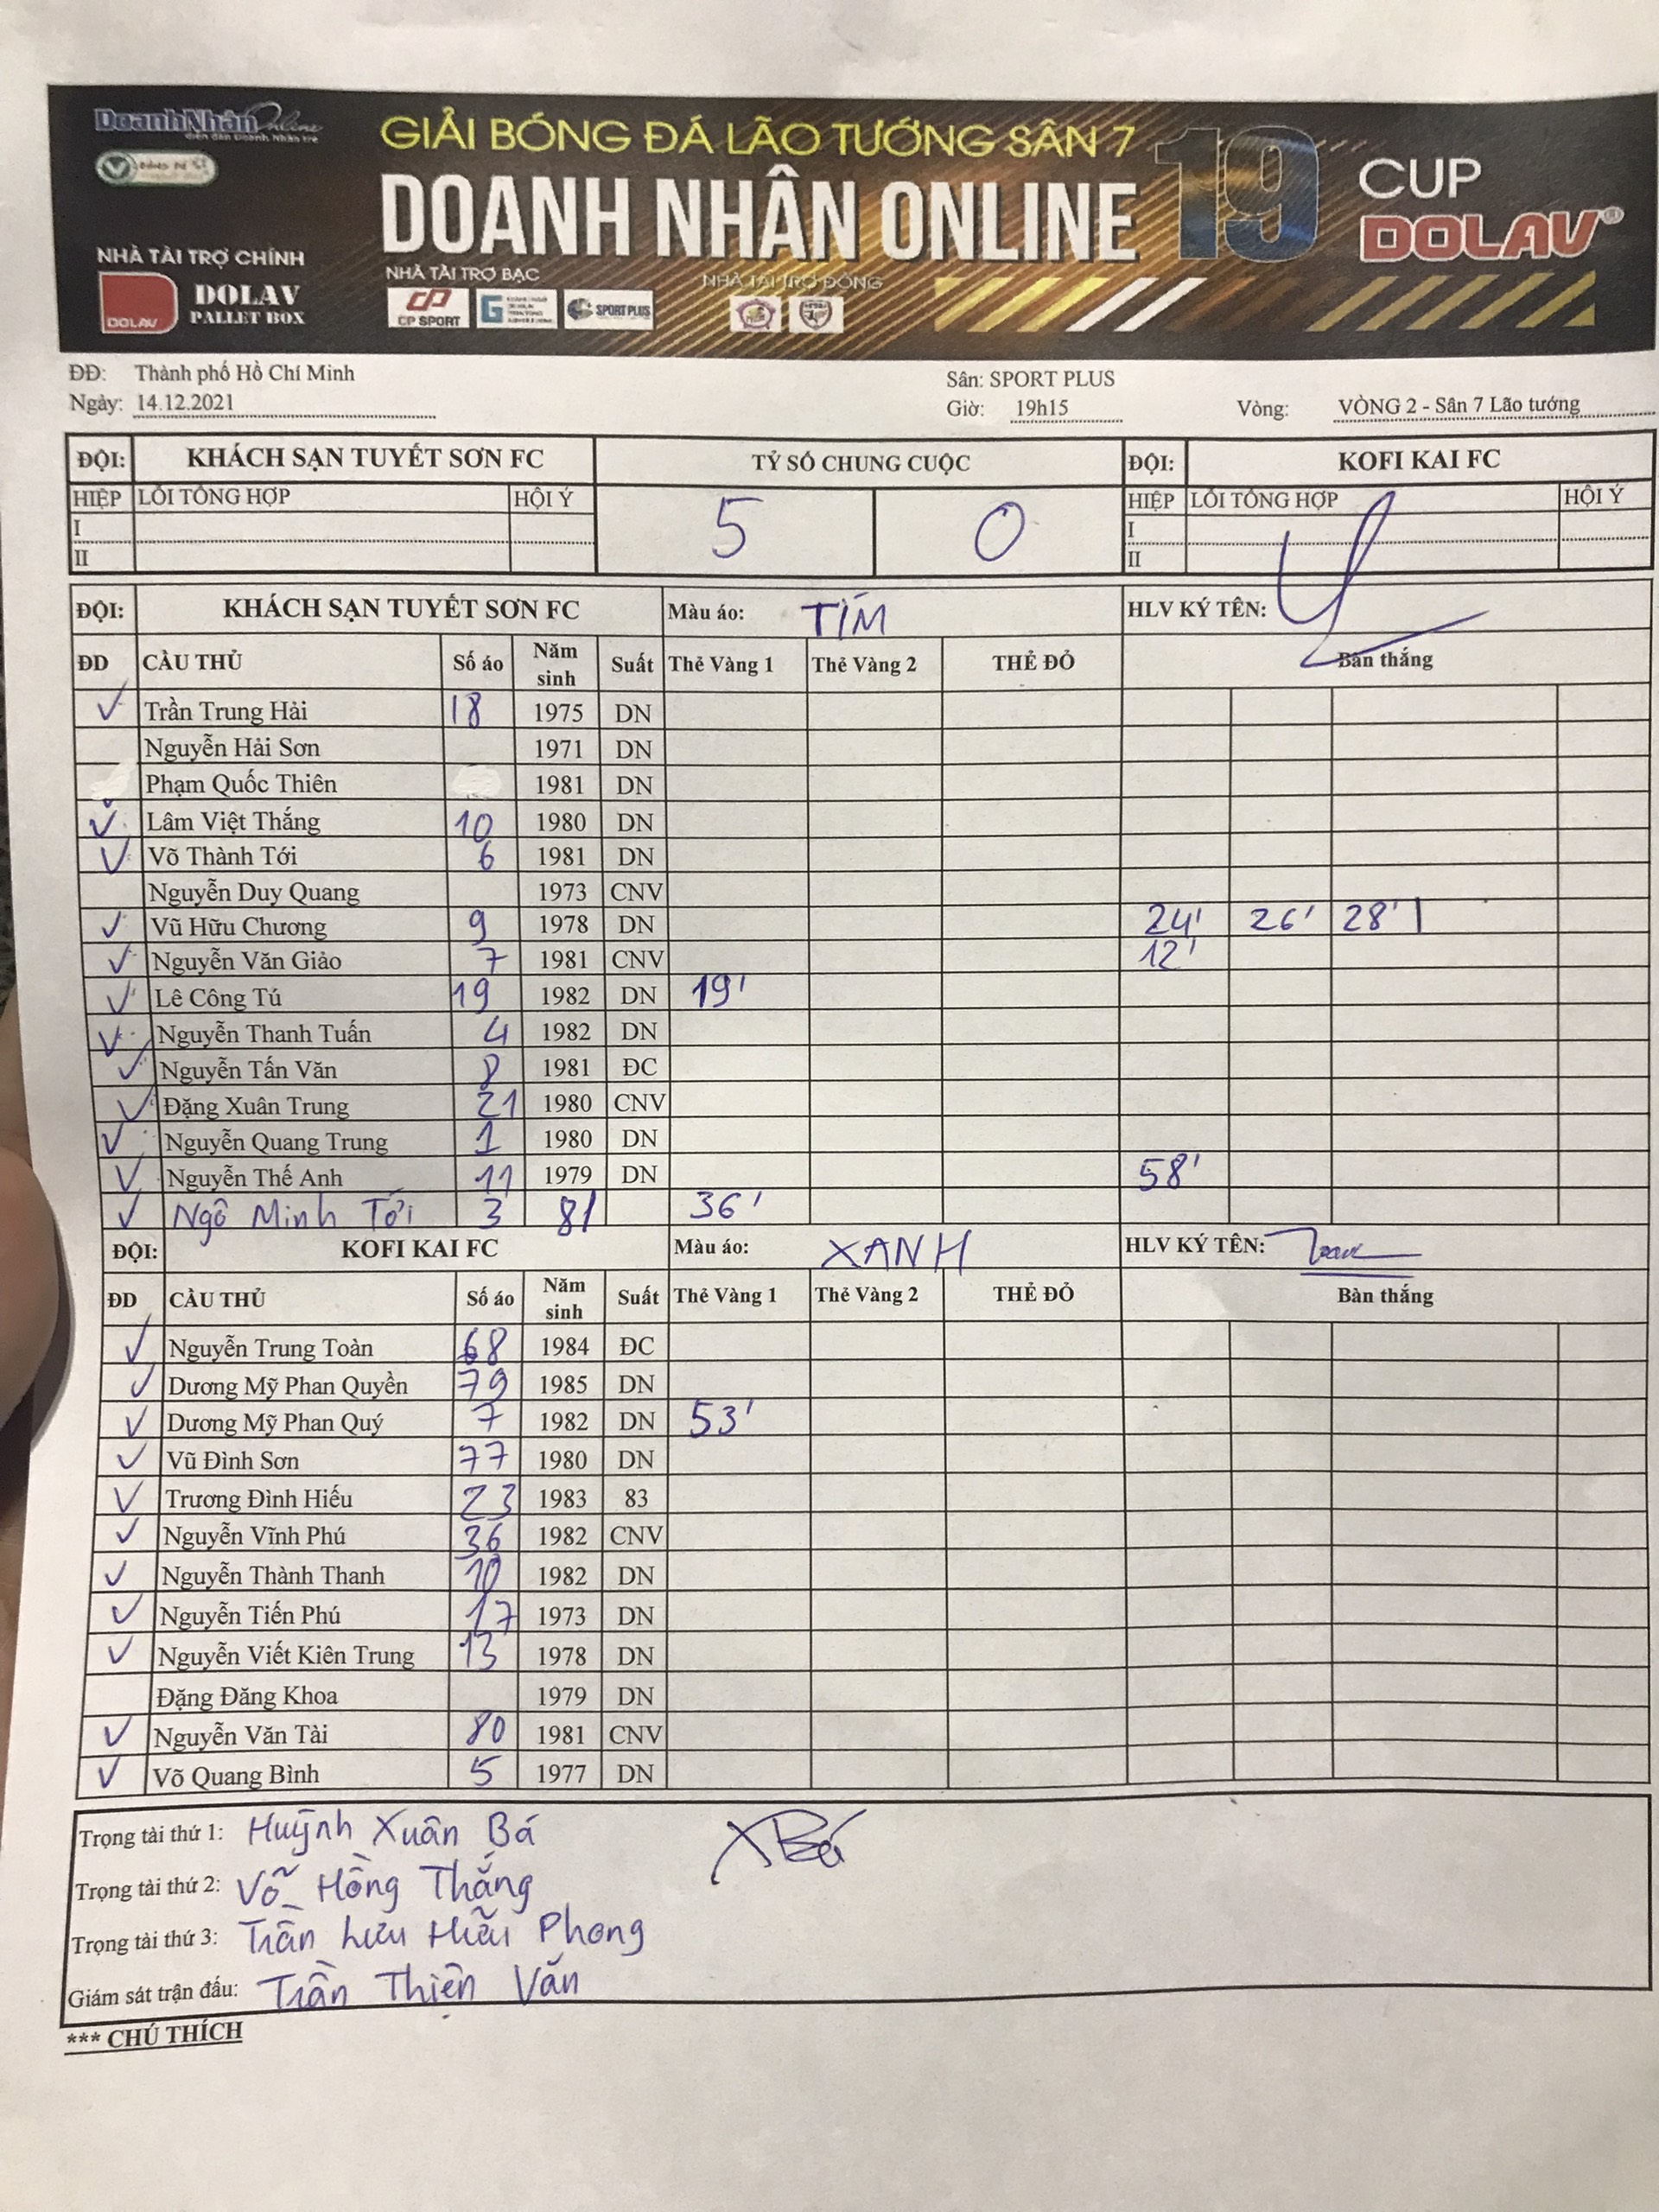 DoanhNhân Online
GIẢI BÓNG ĐÁ LÃO TƯỚNG SÂN 7
DOANH NHÂN ONLINE 19 CUP DOLAV®
NHÀ TÀI TRỢ CHÍNH
DOLAV DOLAV PALLET BOX
NHÀ TÀI TRỢ BẠC
CP SPORT SPORT PLUS
NHÀ TÀI TRỢ ĐỒNG
ĐĐ: Thành phố Hồ Chí Minh Sân: SPORT PLUS
Ngày: 14.12.2021 Giờ: 19h15 Vòng: VÒNG 2 - Sân 7 Lão tướng
ĐỘI: KHÁCH SẠN TUYẾT SƠN FC TỶ SỐ CHUNG CUỘC ĐỘI: KOFI KAI FC
HIỆP LỖI TỔNG HỢP HỘI Ý 5 0 HIỆP LỖI TỔNG HỢP HỘI Ý
I I
II II
ĐỘI: KHÁCH SẠN TUYẾT SƠN FC Màu áo: TÍM HLV KÝ TÊN:
ĐD CẦU THỦ Số áo Năm sinh Suất Thẻ Vàng 1 Thẻ Vàng 2 THẺ ĐỎ Bàn thắng
Trần Trung Hải 18 1975 DN
Nguyễn Hải Sơn 1971 DN
Phạm Quốc Thiên 1981 DN
Lâm Việt Thắng 10 1980 DN
Võ Thành Tới 6 1981 DN
Nguyễn Duy Quang 1973 CNV
Vũ Hữu Chương 9 1978 DN 24' 26' 28'
Nguyễn Văn Giảo 7 1981 CNV 12'
Lê Công Tú 19 1982 DN 19'
Nguyễn Thanh Tuấn 4 1982 DN
Nguyễn Tấn Văn 8 1981 ĐC
Đặng Xuân Trung 21 1980 CNV
Nguyễn Quang Trung 1 1980 DN
Nguyễn Thế Anh 11 1979 DN 58'
Ngô Minh Tới 3 81 36'
ĐỘI: KOFI KAI FC Màu áo: XANH HLV KÝ TÊN:
ĐD CẦU THỦ Số áo Năm sinh Suất Thẻ Vàng 1 Thẻ Vàng 2 THẺ ĐỎ Bàn thắng
Nguyễn Trung Toàn 68 1984 ĐC
Dương Mỹ Phan Quyền 79 1985 DN
Dương Mỹ Phan Quý 7 1982 DN 53'
Vũ Đình Sơn 77 1980 DN
Trương Đình Hiếu 23 1983 83
Nguyễn Vĩnh Phú 36 1982 CNV
Nguyễn Thành Thanh 10 1982 DN
Nguyễn Tiến Phú 17 1973 DN
Nguyễn Viết Kiên Trung 13 1978 DN
Đặng Đăng Khoa 1979 DN
Nguyễn Văn Tài 80 1981 CNV
Võ Quang Bình 5 1977 DN
Trọng tài thứ 1: Huỳnh Xuân Bá XBá
Trọng tài thứ 2: Võ Hồng Thắng
Trọng tài thứ 3: Trần Lưu Hữu Phong
Giám sát trận đấu: Trần Thiện Văn
*** CHÚ THÍCH